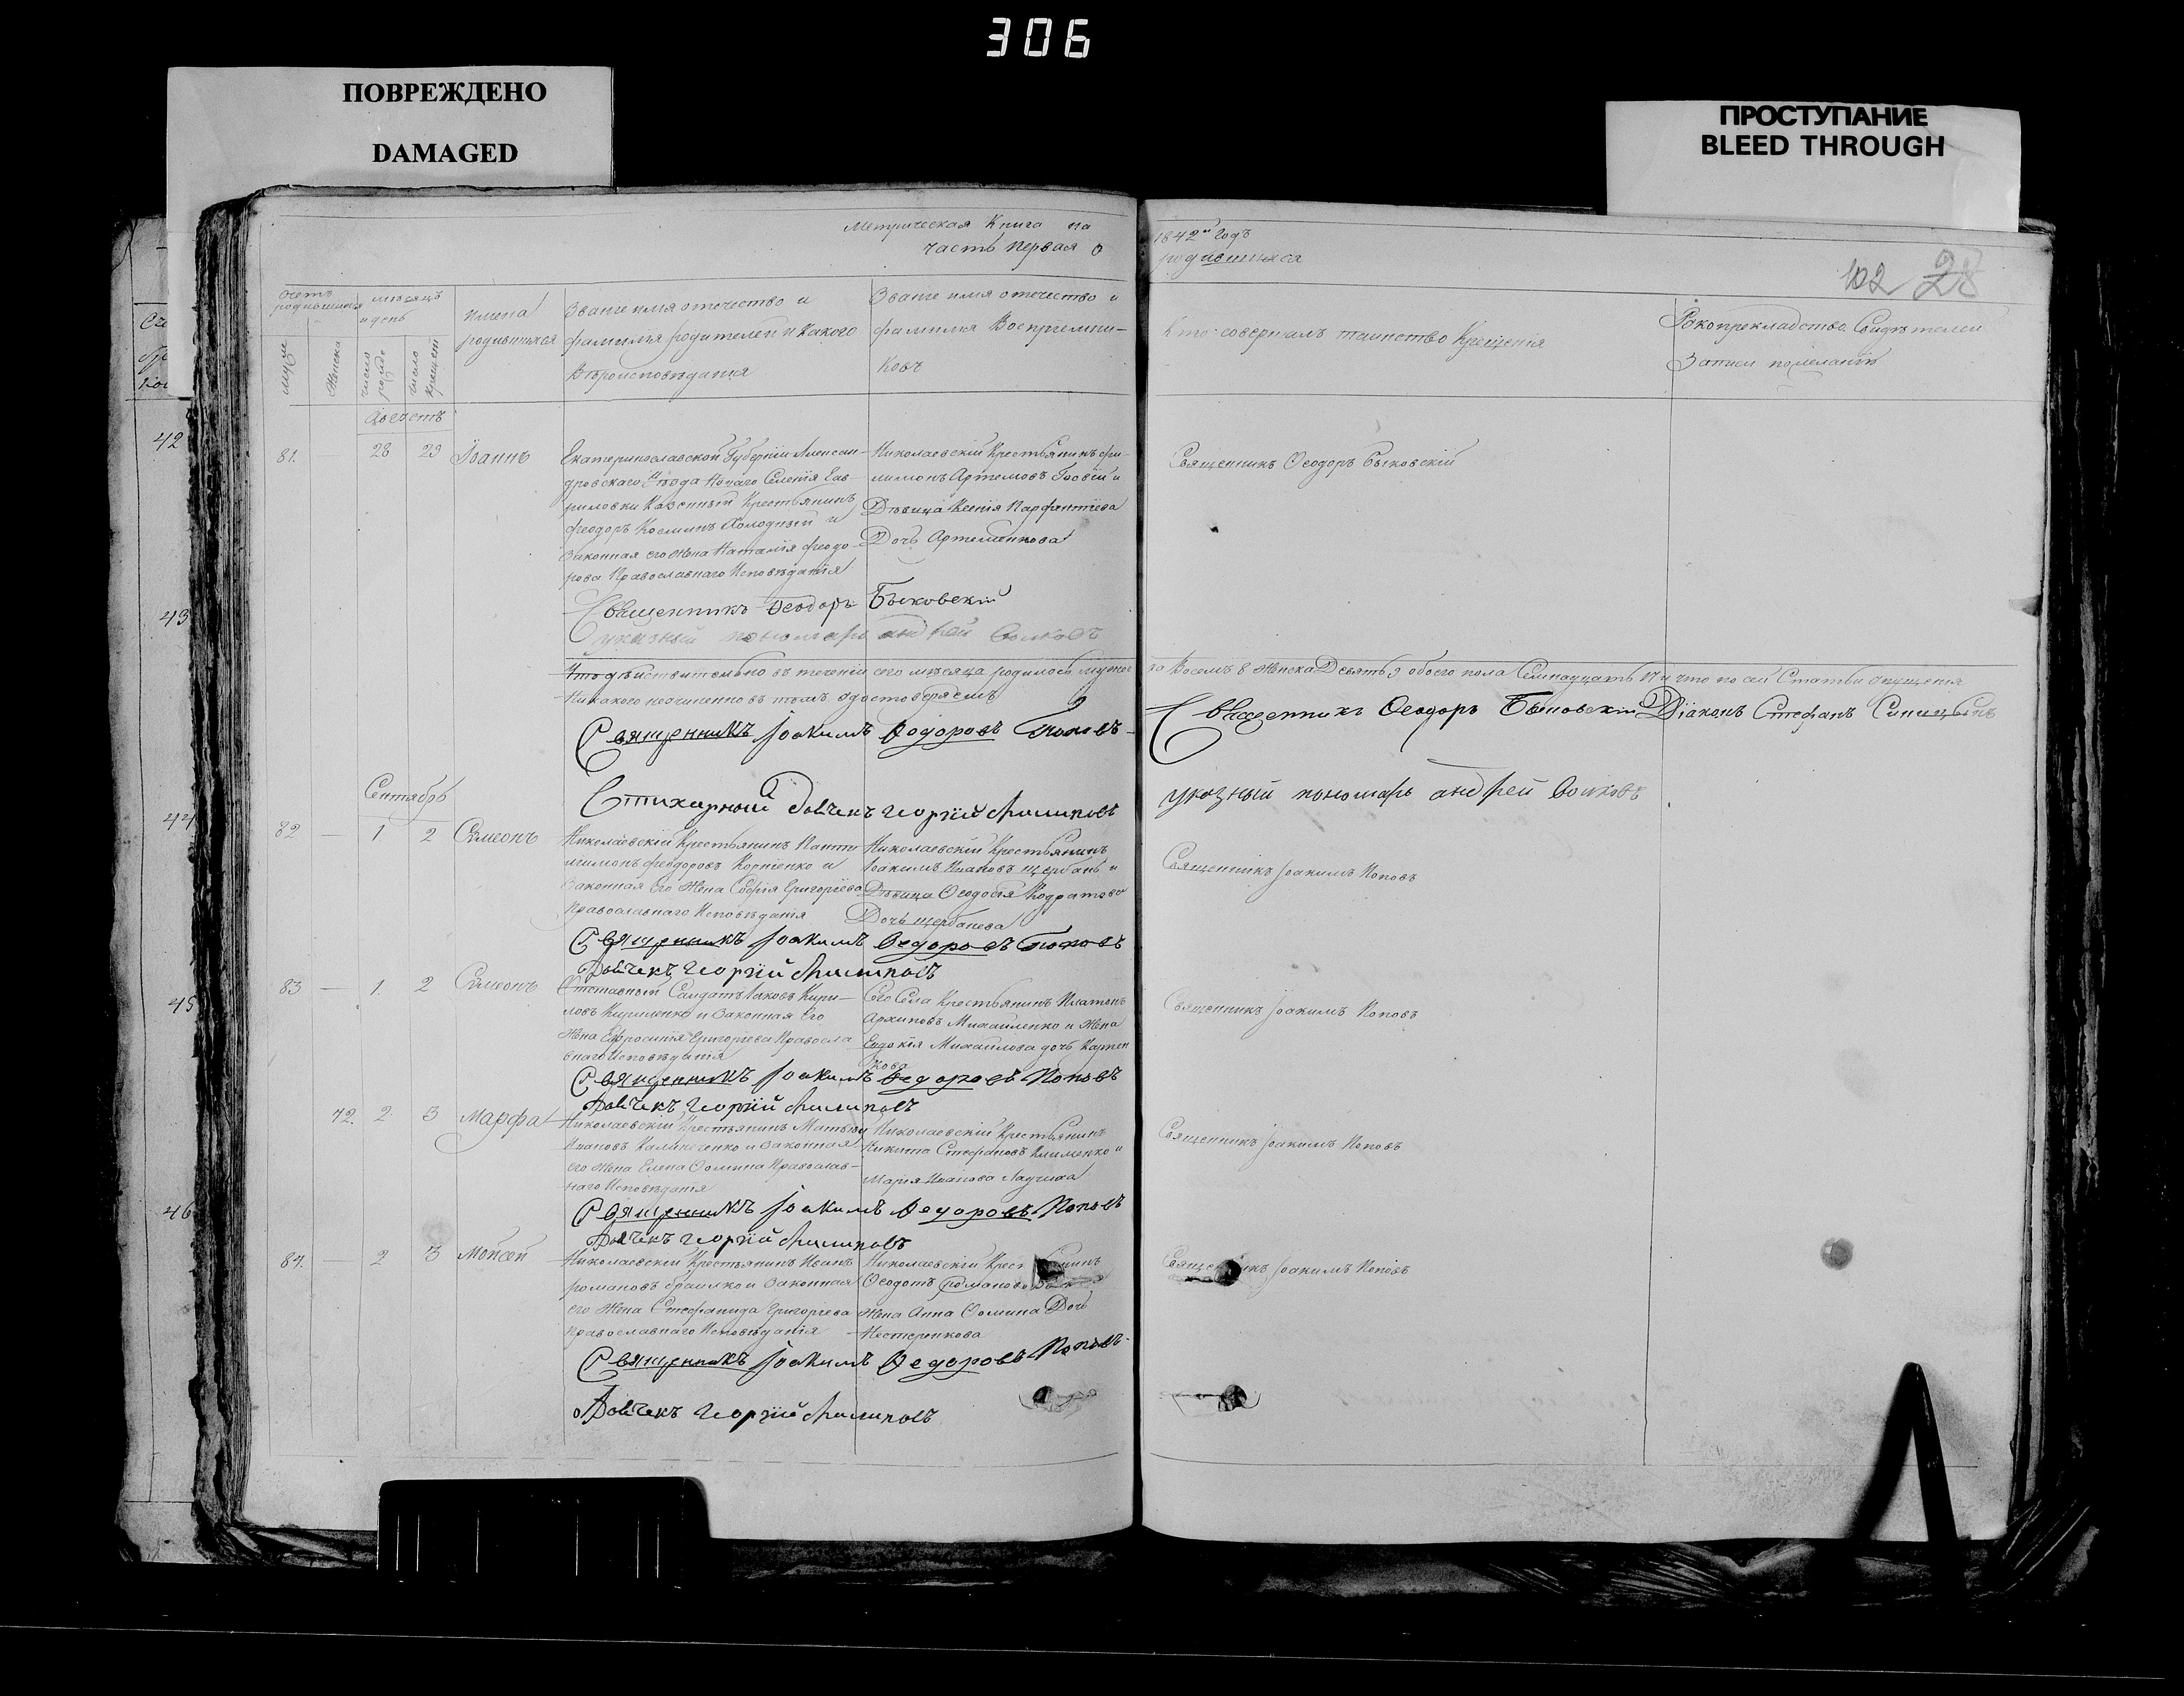 306
ПОВРЕЖДЕНО
DAMAGED
ПРОСТУПАНИЕ
BLEED THROUGH
Метрическая Книга на
часть первая о
1842й годъ
родившихся
102 28
Счетъ родившихся
мѣсяцъ и день
муж
женска
число рожде
число крещен
имена родившихся
Званiе имя отечество и
фамилiя родителей и какого
вѣроисповѣданiя
Званiе имя отечество и
фамилiя Воспрiемни-
ковъ
Кто совершалъ таинство Крещенiя
Рокоприкладство Свидѣтелей
Записи пожеланiю
Августъ
81. — 28 29 Iоаннъ
Екатеринославской Губернiи Алексан-
дровскаго уѣзда
Казенный Крестьянинъ
Феодоръ Косминъ Холодный и
Законная его Жена Наталiя Феодо-
рова Православнаго Исповѣданiя
Николаевскiй Крестьянинъ Фи-
лимонъ Артемовъ и
Дѣвица Ксенiя Парфентiева
Дочь Артеменкова
Священникъ Феодоръ Быковскiй
Священникъ Феодоръ Быковскiй
указный пономарь андрей Волковъ
Что дѣйствительно въ теченiи сего мѣсяца родилось мужес
ка Восемъ 8 Женска Девять 9 обоего пола Семнадцать 17 и что по сей Статьи опущенiя
Никакого неучиненно въ томъ удостоверяемъ
Священникъ Iоакимъ Феодоровъ Поповъ
Священникъ Феодоръ Быковскiй Дiаконъ Стефанъ Синицынъ
Стихарный Дьячекъ Георгiй Филиповъ
указный пономарь андрей Волковъ
Сентябрь
82 — 1. 2 Сѵмеонъ
Николаевскiй Крестьянинъ Панте
лимонъ Феодоровъ Корненко и
Законная Его Жена Софiя Григорiева
Православнаго Исповѣданiя
Николаевскiй Крестьянинъ
Iоакимъ Ивановъ Щербань и
Дѣвица Феодосiя Кодратова
Дочь Щербанева
Священникъ Iоакимъ Поповъ
Священникъ Iоакимъ Феодоровъ Поповъ
Дьячекъ Георгiй Филиповъ
83 — 1. 2 Сѵмеонъ
Отставный Салдатъ Iаковъ Кири-
ловъ Кириленко и Законная Его
Жена Ефросинiя Григорiева Правосла
внаго Исповѣданiя
Сего Села Крестьянинъ Платонъ
Архиповъ Михайленко и Жена
Евдокiя Михайлова дочь Карпен
кова
Священникъ Iоакимъ Поповъ
Священникъ Iоакимъ Феодоровъ Поповъ
Дьячекъ Георгiй Филиповъ
72. 2. 3 Марфа
Николаевскiй Крестьянинъ Матвѣй
Ивановъ Калиниченко и Законная
его Жена Елена Фомина Православ-
наго Исповѣданiя
Николаевскiй Крестьянинъ
Никита Стефановъ Клименко и
Марiя Иванова
Священникъ Iоакимъ Поповъ
Священникъ Iоакимъ Феодоровъ Поповъ
Дьячекъ Георгiй Филиповъ
84. — 2 3 Мойсей
Николаевскiй Крестьянинъ Иванъ
Романовъ Браилко и Законная
его Жена Стефанида Григорiева
Православнаго Исповѣданiя
Николаевскiй Крестьянинъ
Феодотъ Романовъ
Жена Анна Фомина Дочь
Нестеренкова
Священникъ Iоакимъ Поповъ
Священникъ Iоакимъ Феодоровъ Поповъ
Дьячекъ Георгiй Филиповъ
42
43
44
45
46